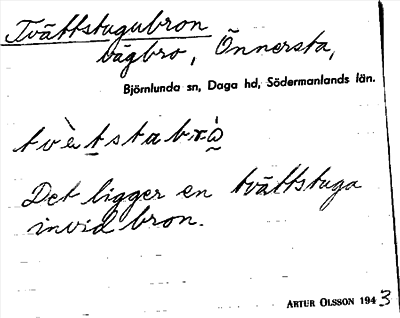 Tvättstugubron
vägbro, Önnersta,
Björnlunda sn, Daga hd, Södermanlands län.
tvὲtstabrὼ
Det ligger en tvättstuga
invid bron.
ARTUR OLSSON 1943